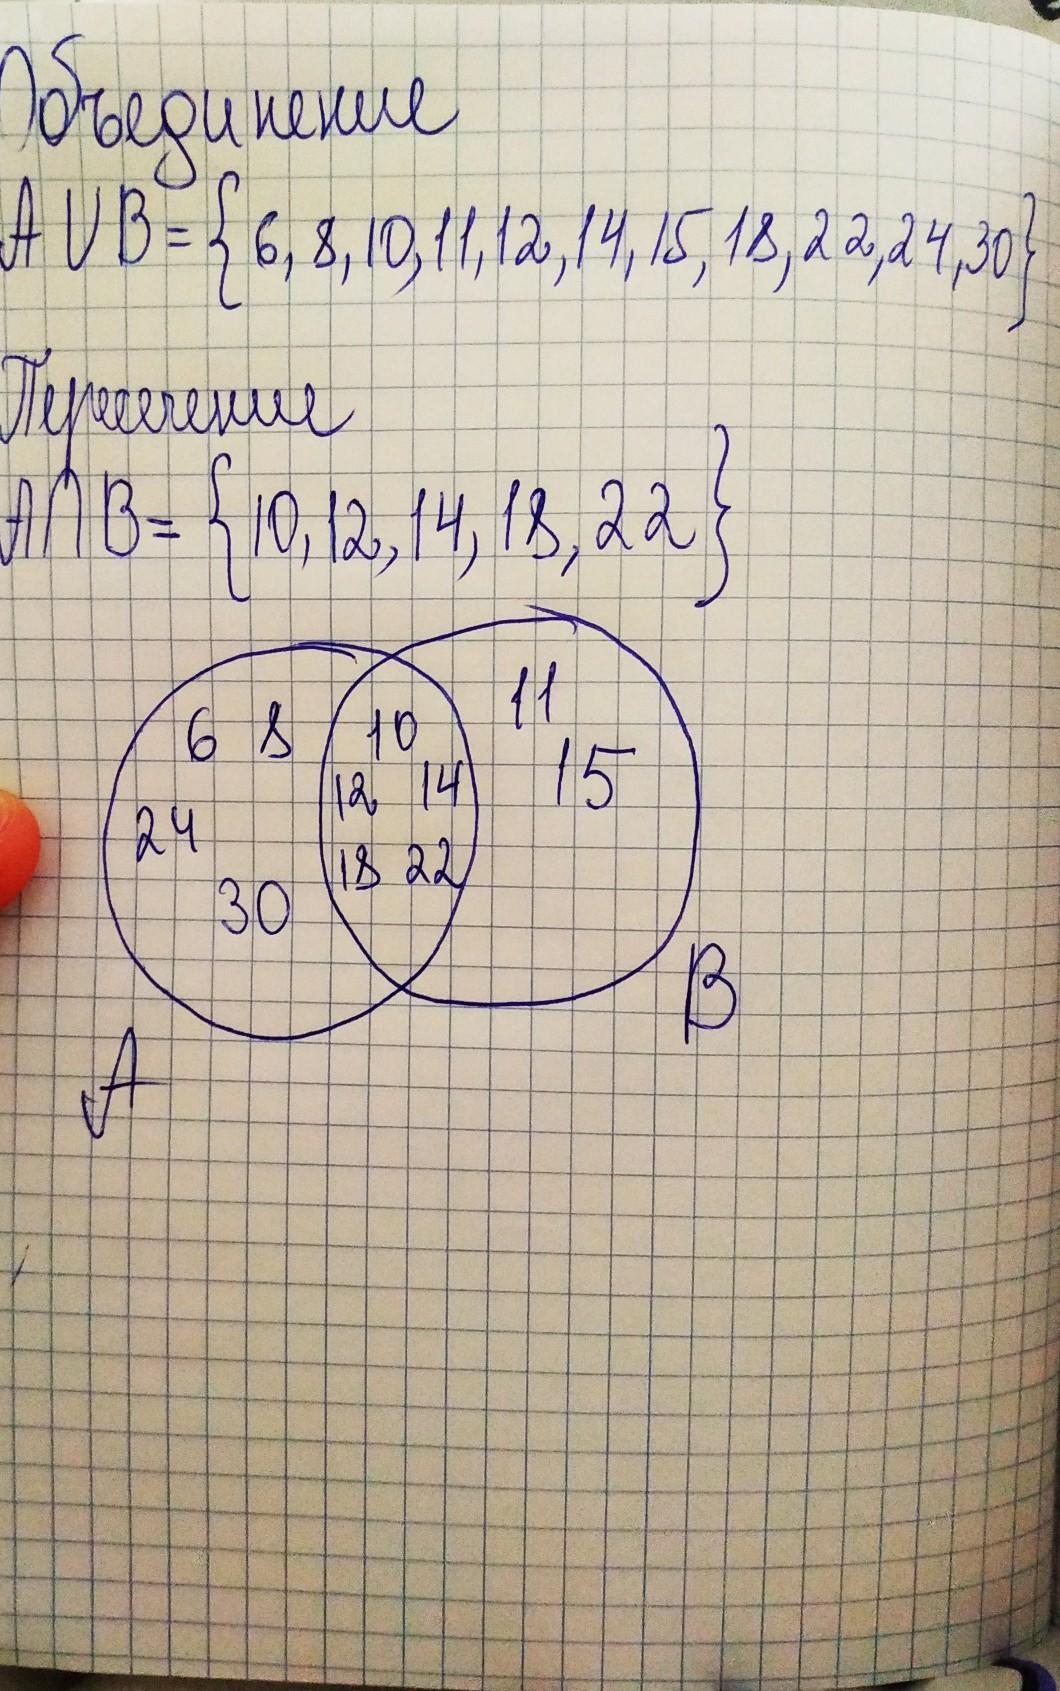 Объединение
A U B = {6, 8, 10, 11, 12, 14, 15, 18, 22, 24, 30}
Пересечение
A ∩ B = {10, 12, 14, 18, 22}
6 8 10 11
12 14 15
24
18 22
30
B
A